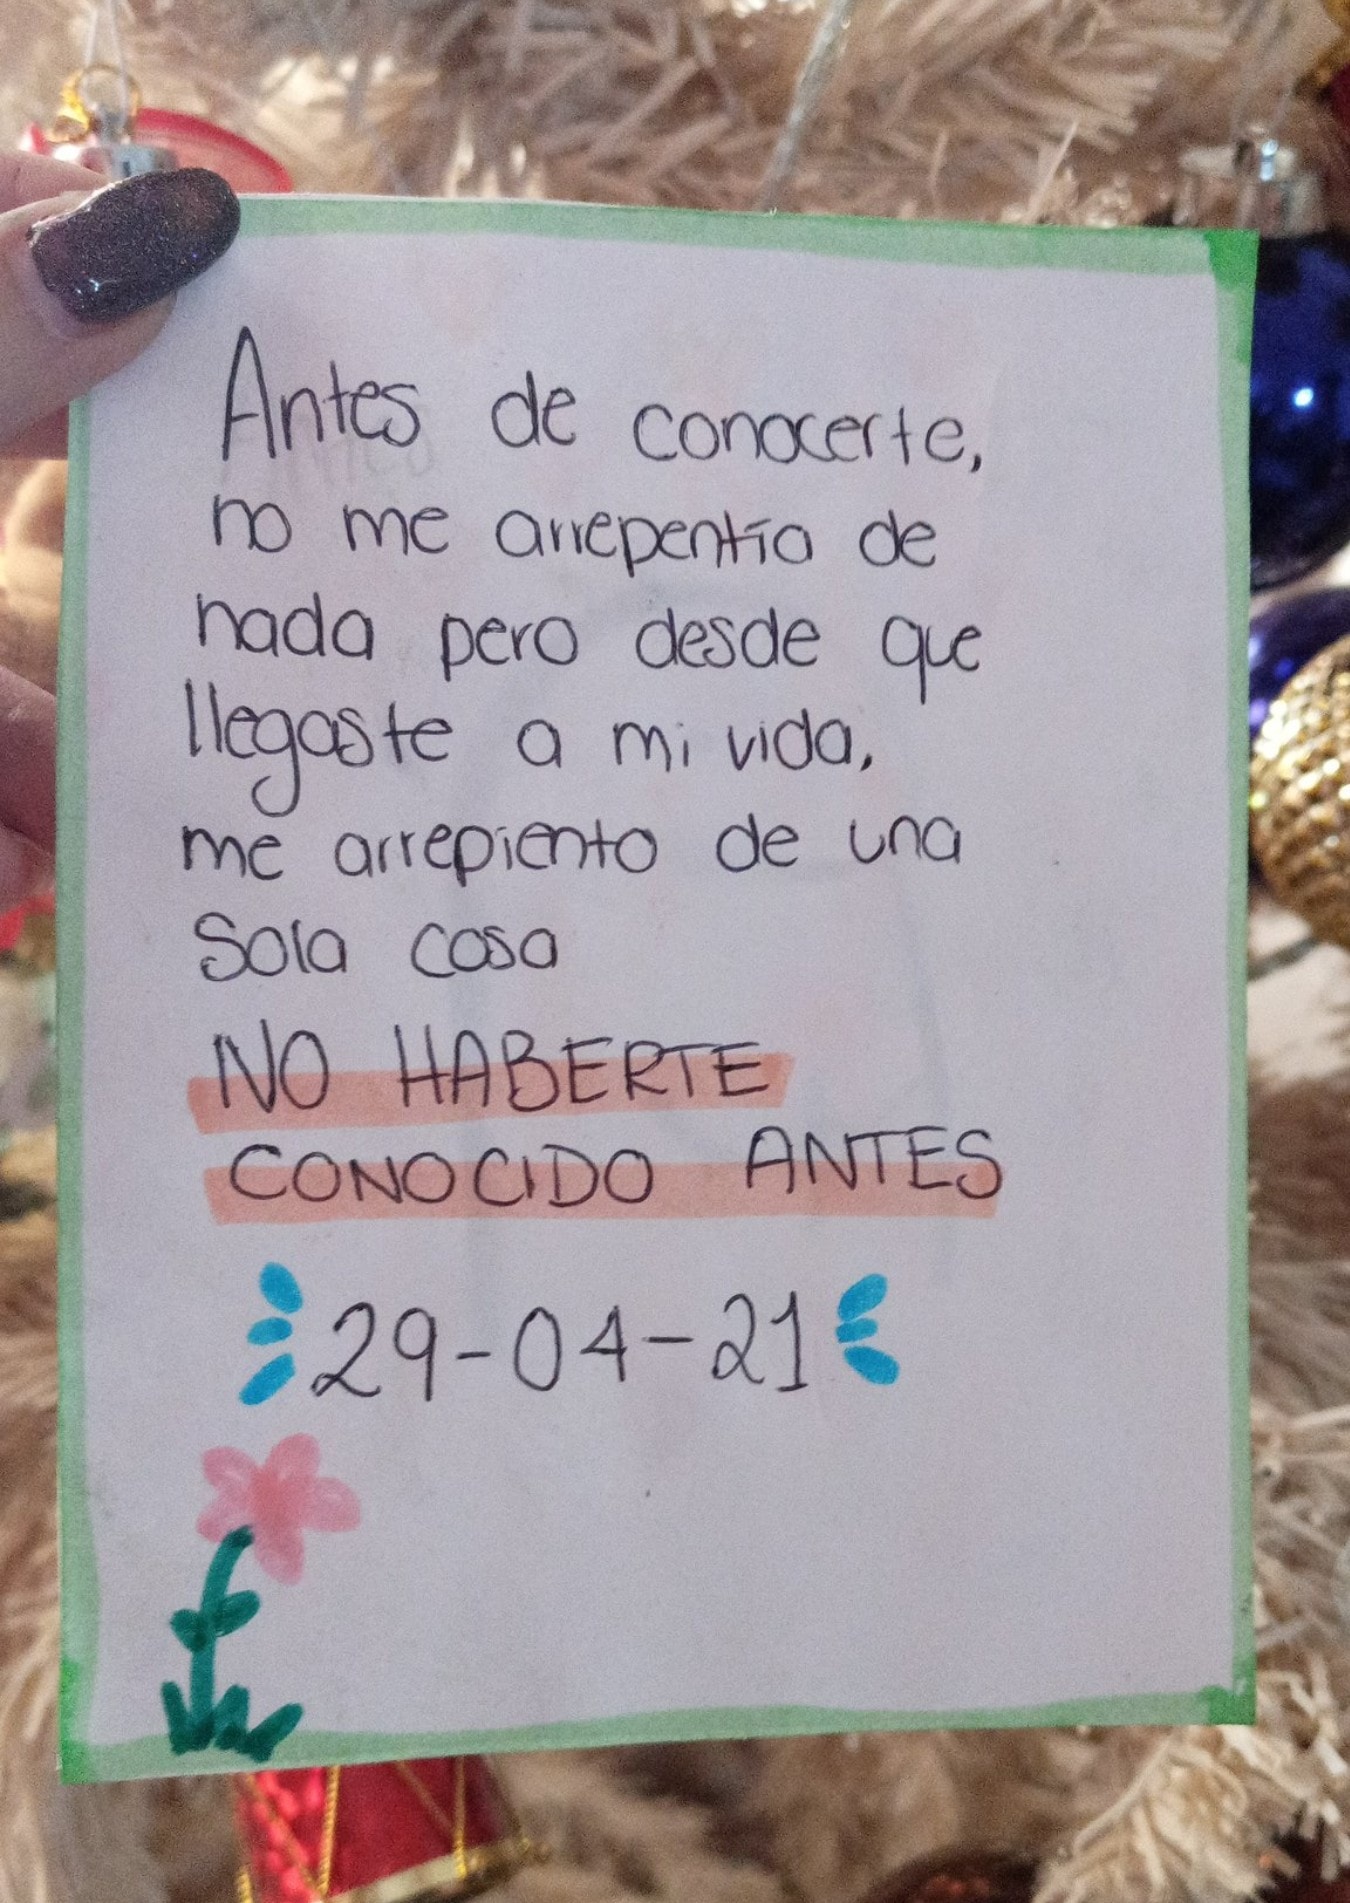 Antes de conocerte,
no me arrepentía de
nada pero desde que
llegaste a mi vida,
me arrepiento de una
sola cosa
NO HABERTE
CONOCIDO ANTES
29-04-21